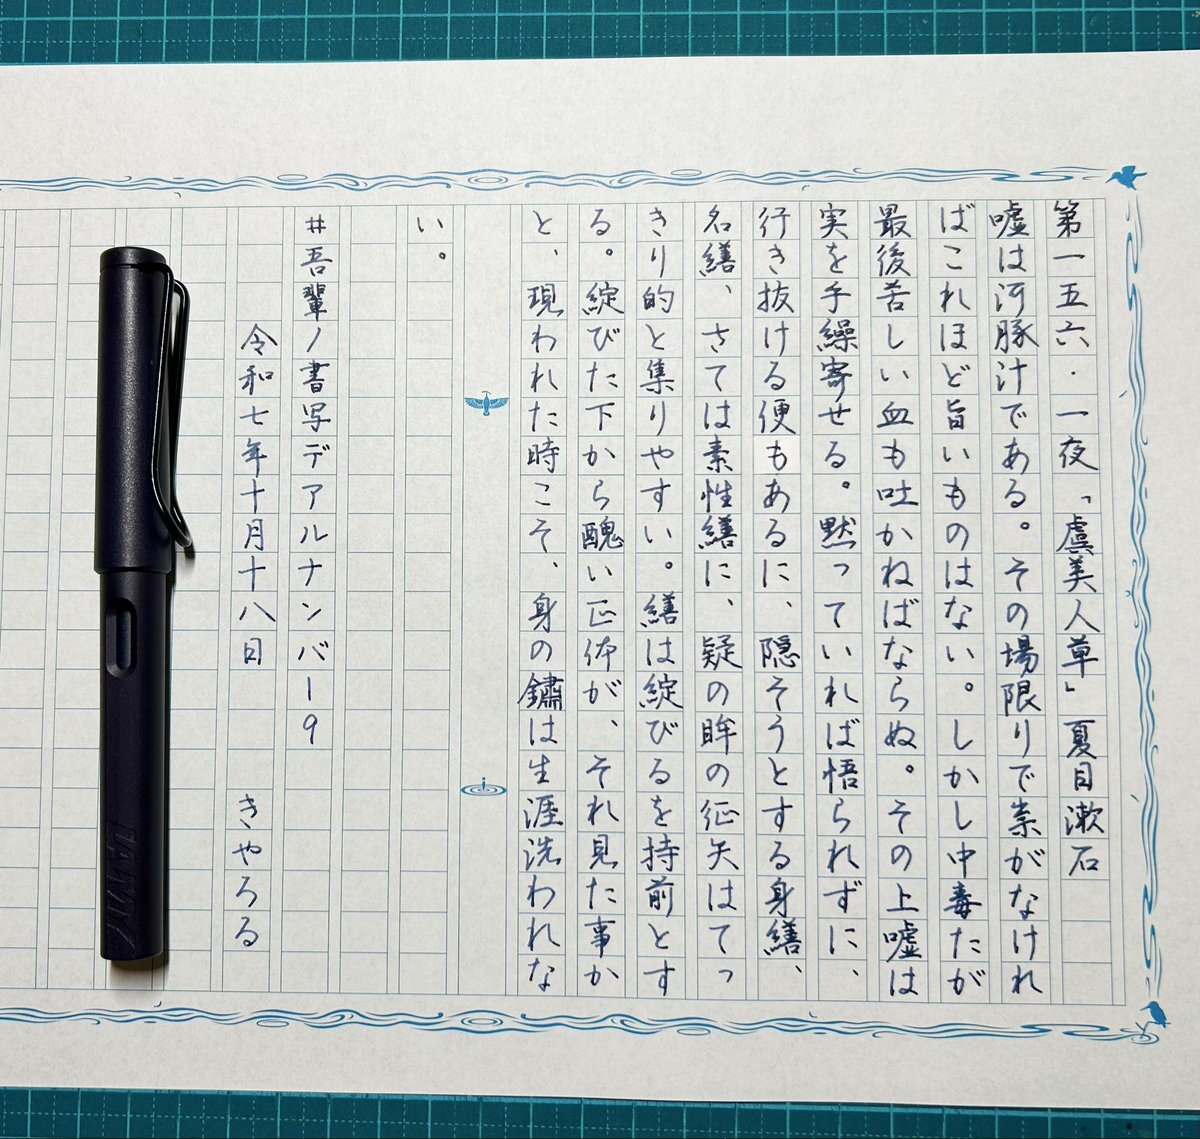 第一五六・一夜「虞美人草」夏目漱石
嘘は河豚汁である。その場限りで祟がなけれ
ばこれほど旨いものはない。しかし中毒たが
最後苦しい血も吐かねばならぬ。その上嘘は
実を手繰寄せる。黙っていれば悟られずに、
行き抜ける便もあるに、隠そうとする身繕、
名繕、さては素性繕に、疑の眸の征矢はてっ
きり的と集りやすい。繕は綻びるを持前とす
る。綻びた下から醜い正体が、それ見た事か
と、現われた時こそ、身の鏽は生涯洗われな
い。
#吾輩ノ書写デアルナンバー9
令和七年十月十八日 きやろる
LAMY